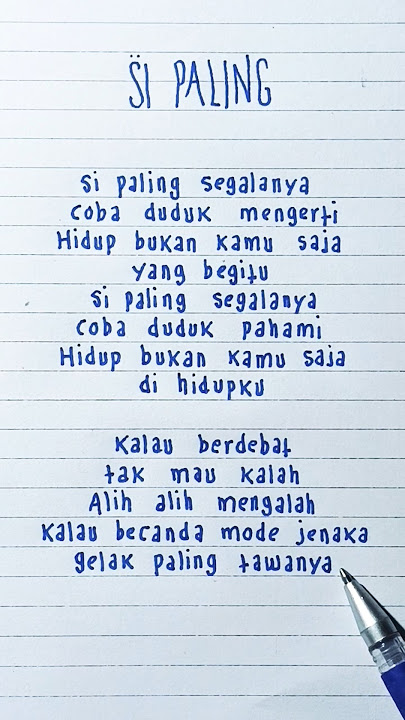 SI PALING
Si paling segalanya
coba duduk mengerti
Hidup bukan kamu saja
yang begitu
Si paling segalanya
coba duduk pahami
Hidup bukan kamu saja
di hidupku
Kalau berdebat
tak mau kalah
Alih alih mengalah
Kalau becanda mode jenaka
gelak paling tawanya